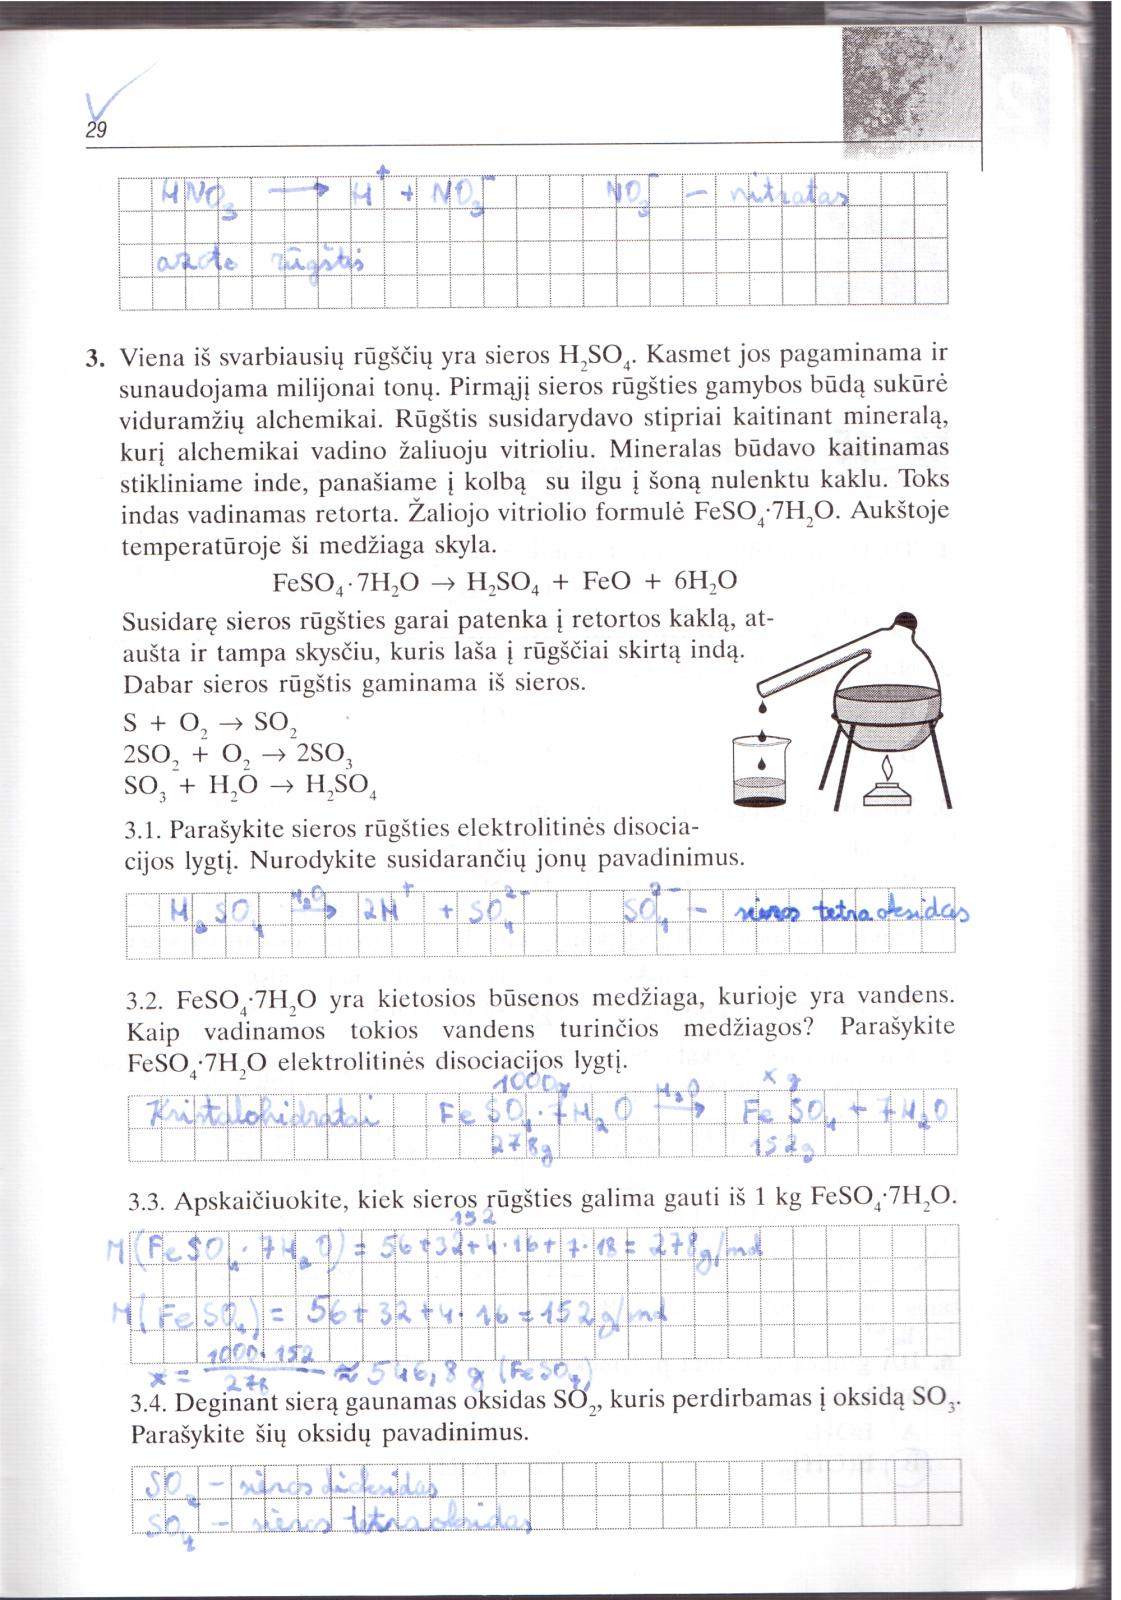 29
HNO₃ → H⁺ + NO₃⁻ NO₃⁻ – nitratas
azoto rūgštis
3. Viena iš svarbiausių rūgščių yra sieros H₂SO₄. Kasmet jos pagaminama ir
sunaudojama milijonai tonų. Pirmąjį sieros rūgšties gamybos būdą sukūrė
viduramžių alchemikai. Rūgštis susidarydavo stipriai kaitinant mineralą,
kurį alchemikai vadino žaliuoju vitrioliu. Mineralas būdavo kaitinamas
stikliniame inde, panašiame į kolbą su ilgu į šoną nulenktu kaklu. Toks
indas vadinamas retorta. Žaliojo vitriolio formulė FeSO₄·7H₂O. Aukštoje
temperatūroje ši medžiaga skyla.
FeSO₄·7H₂O → H₂SO₄ + FeO + 6H₂O
Susidarę sieros rūgšties garai patenka į retortos kaklą, at-
aušta ir tampa skysčiu, kuris laša į rūgščiai skirtą indą.
Dabar sieros rūgštis gaminama iš sieros.
S + O₂ → SO₂
2SO₂ + O₂ → 2SO₃
SO₃ + H₂O → H₂SO₄
3.1. Parašykite sieros rūgšties elektrolitinės disocia-
cijos lygtį. Nurodykite susidarančių jonų pavadinimus.
H₂O
H₂SO₄ → 2H⁺ + SO₄²⁻ SO₄²⁻ – sieros tetraoksidas
3.2. FeSO₄·7H₂O yra kietosios būsenos medžiaga, kurioje yra vandens.
Kaip vadinamos tokios vandens turinčios medžiagos? Parašykite
FeSO₄·7H₂O elektrolitinės disociacijos lygtį.
1000g H₂O x g
Kristalohidratai FeSO₄·7H₂O → FeSO₄ + 7H₂O
278g 152g
3.3. Apskaičiuokite, kiek sieros rūgšties galima gauti iš 1 kg FeSO₄·7H₂O.
152
M(FeSO₄·7H₂O) = 56+32+4·16+7·18 = 278g/mol
M(FeSO₄) = 56+32+4·16=152g/mol
x = 1000·152/278 ≈ 546,8 g (FeSO₄)
3.4. Deginant sierą gaunamas oksidas SO₂, kuris perdirbamas į oksidą SO₃.
Parašykite šių oksidų pavadinimus.
SO₂ – sieros dioksidas
SO₄ – sieros tetraoksidas